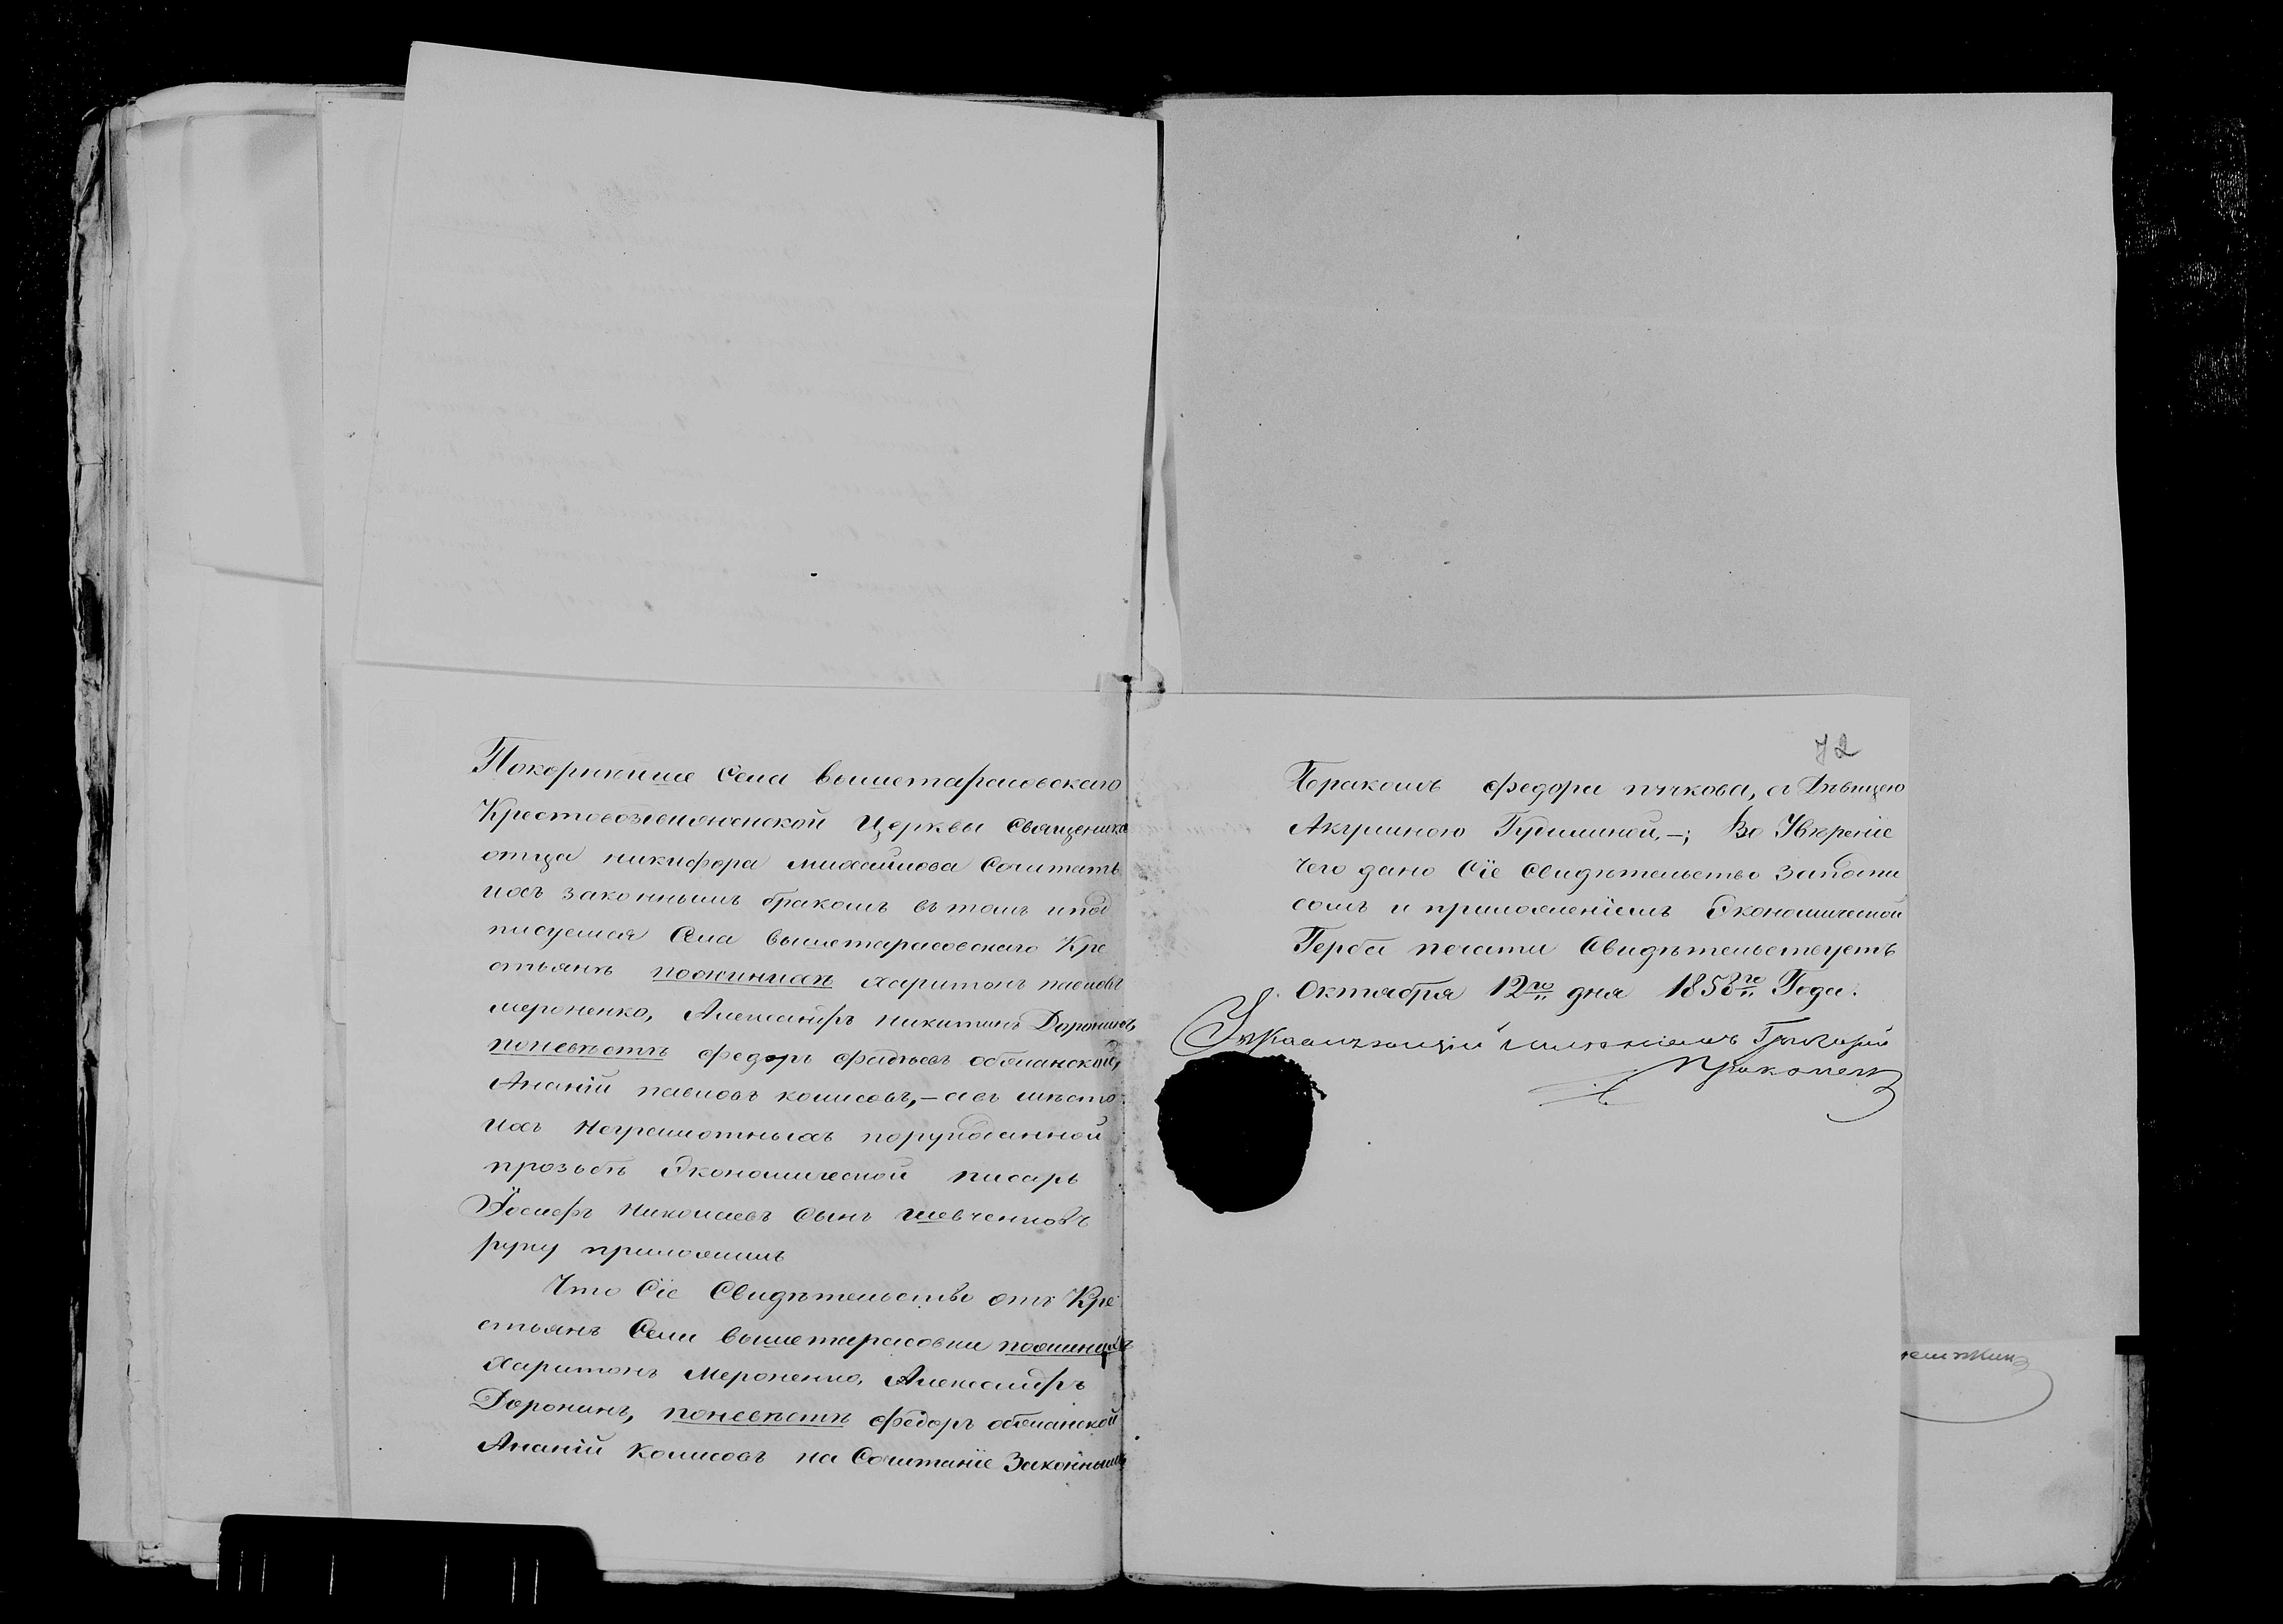 Покорнѣише Села вышетарасовскаго
Крестовоздвиженской Церкви Священика
отца никифора михайлова Сочитать
ихъ законнымъ бракомъ въ томъ ипод
писуемся Села вышетарасовскаго Кре
стьянъ поженихѣ Харитонъ павловъ
мероненко, Александръ никитинъ Доронинъ
поневѣстѣ федоръ фадѣевъ облманской,
Ананiй павловъ колисовъ, – авъ мѣсто
ихъ неграмотныхъ порукоданной
прозьбѣ Экономической писарь
Иосифъ Николаевъ Сынъ шевченковъ
руку приложилъ
Что Сiе Свидѣтельство отъ Кре
стьянъ Села вышетарасовки поженихѣ
Харитонъ Мероненко, Александръ
Доронинъ, поневѣстѣ федоръ облманской
Ананiй Колисовъ на Сочитанiе Законнымъ
72
Бракомъ федора пычкова, съ Дѣвицею
Акулиною Гудилиной, –; Во Увѣренiе
чего дано Сiе Свидѣтельство Заподпи
сомъ и приложенiемъ Экономической
Герба печати Свидѣтельствуетъ
Октября 12го дня 1858го Года.
Управляющiй имѣнiемъ Григорiй